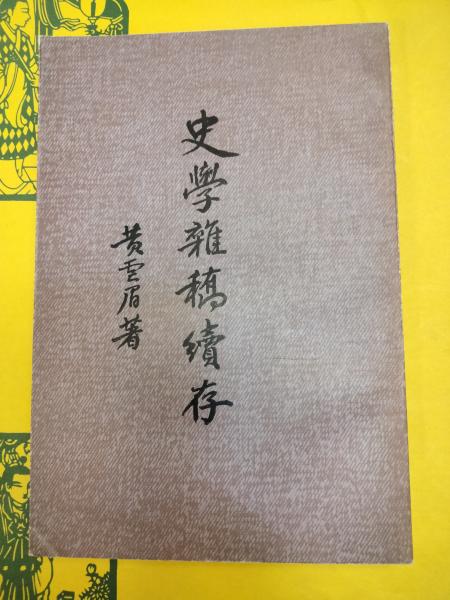 史學雜稿續存
黄雲眉著